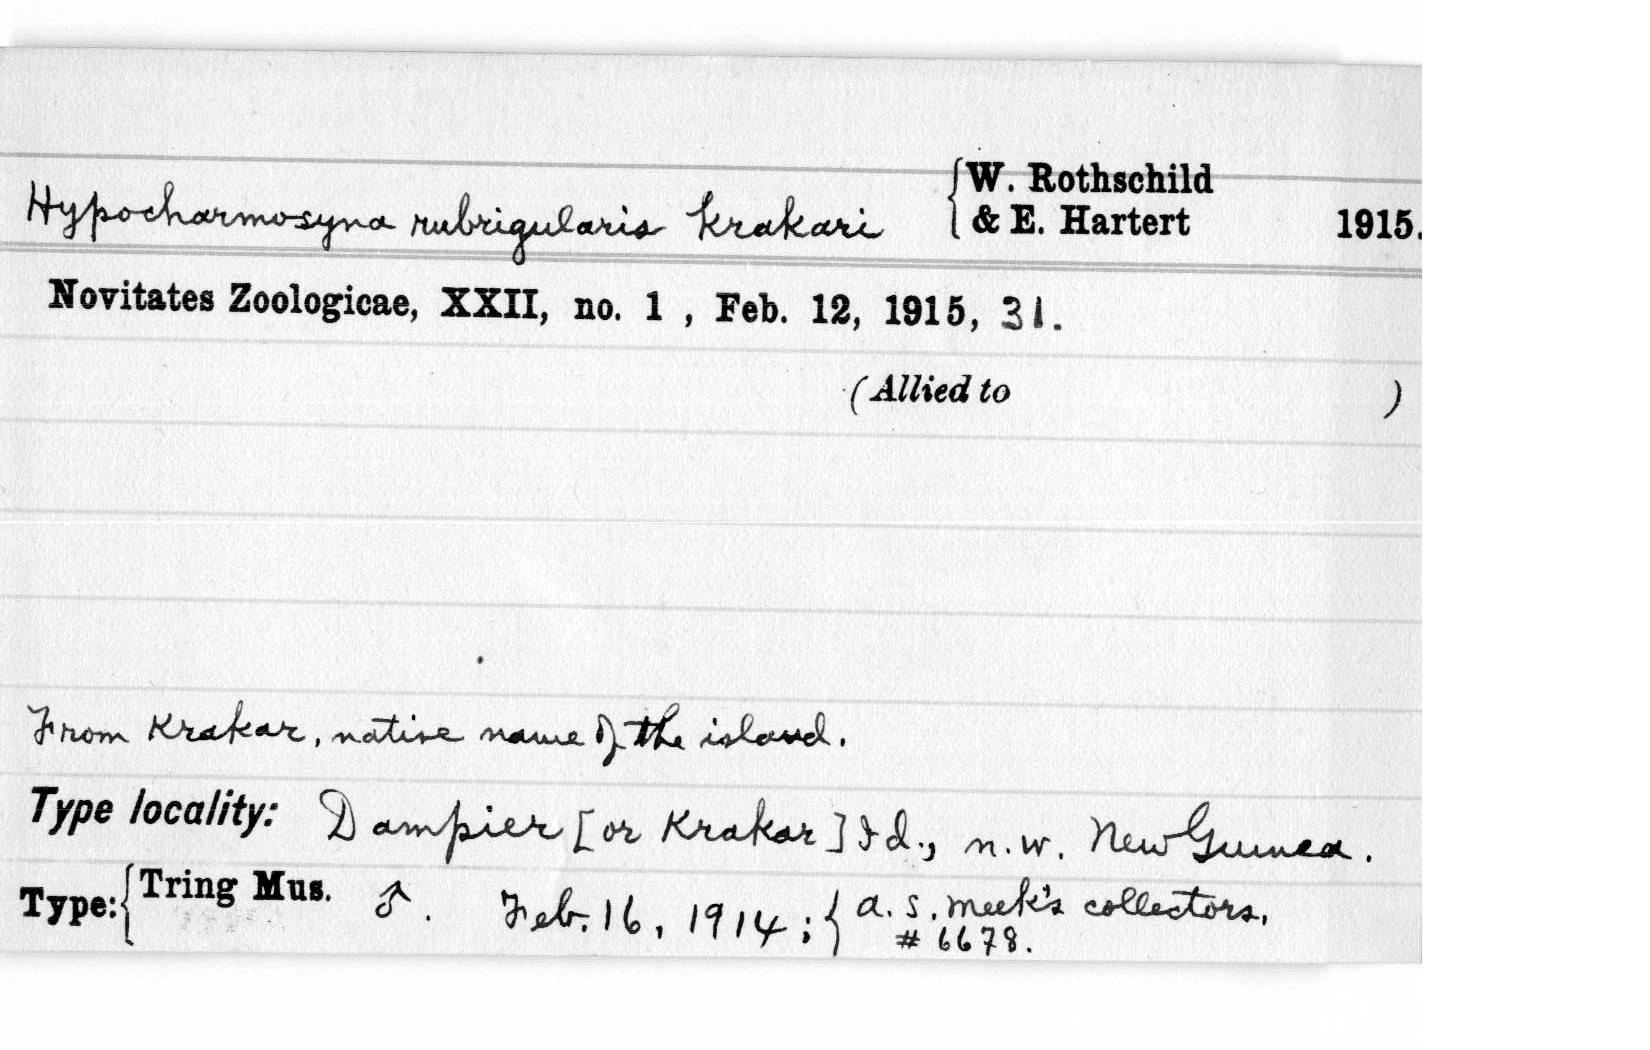 Hypocharmosyna rubrigularis krakari { W. Rothschild & E. Hartert 1915.
Novitates Zoologicae, XXII, no. 1 , Feb. 12, 1915, 31.
(Allied to )
From Krakar, native name of the island.
Type locality: Dampier [or Krakar] Id., n.w. New Guinea.
Type: { Tring Mus. ♂. Feb. 16, 1914; { A. S. Meek's collectors,
# 6678.